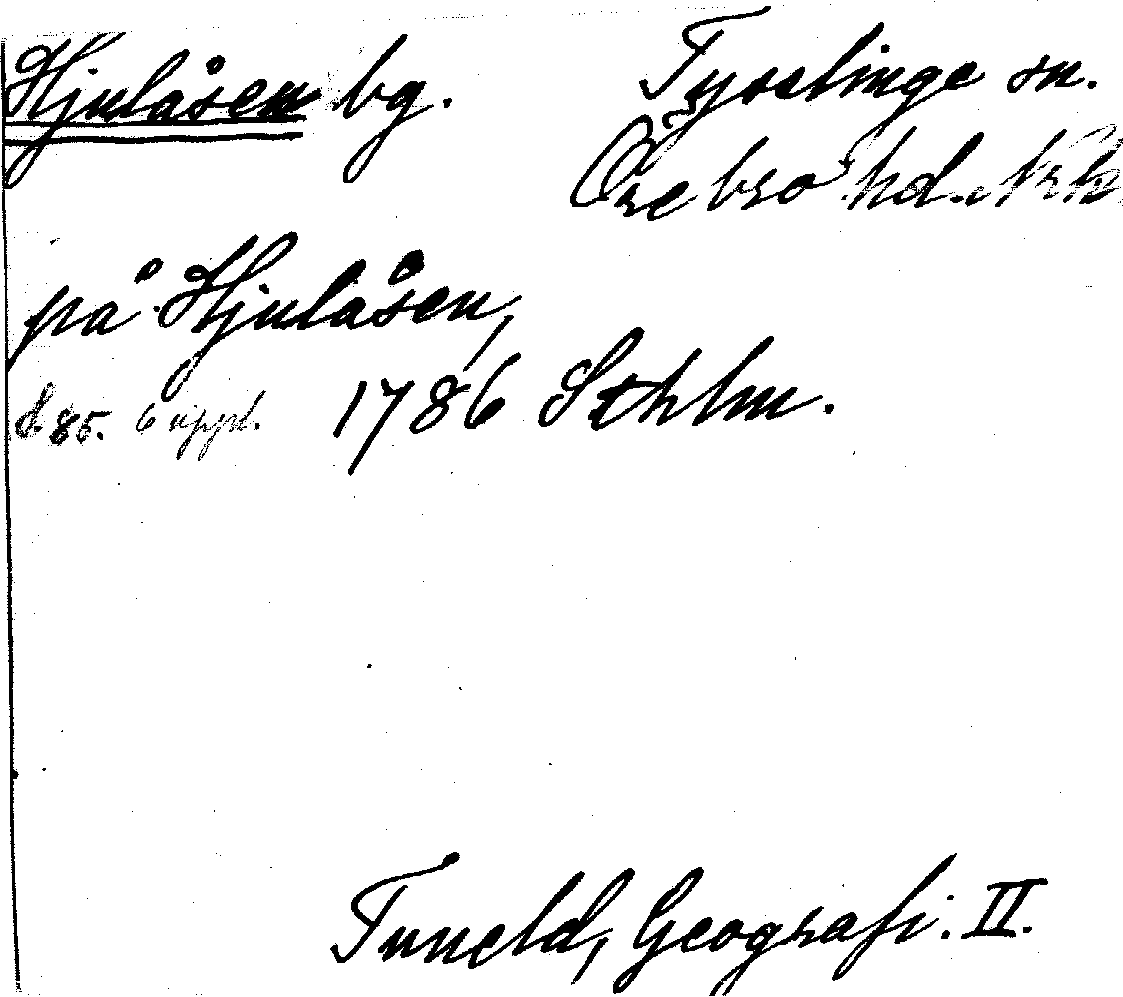 Hjulåsen bg. Tysslinge sn.
Örebro hd. Nrk.
på Hjulåsen,
s. 85. 6 uppl. 1786 Sthlm.
Tuneld, Geografi. II.